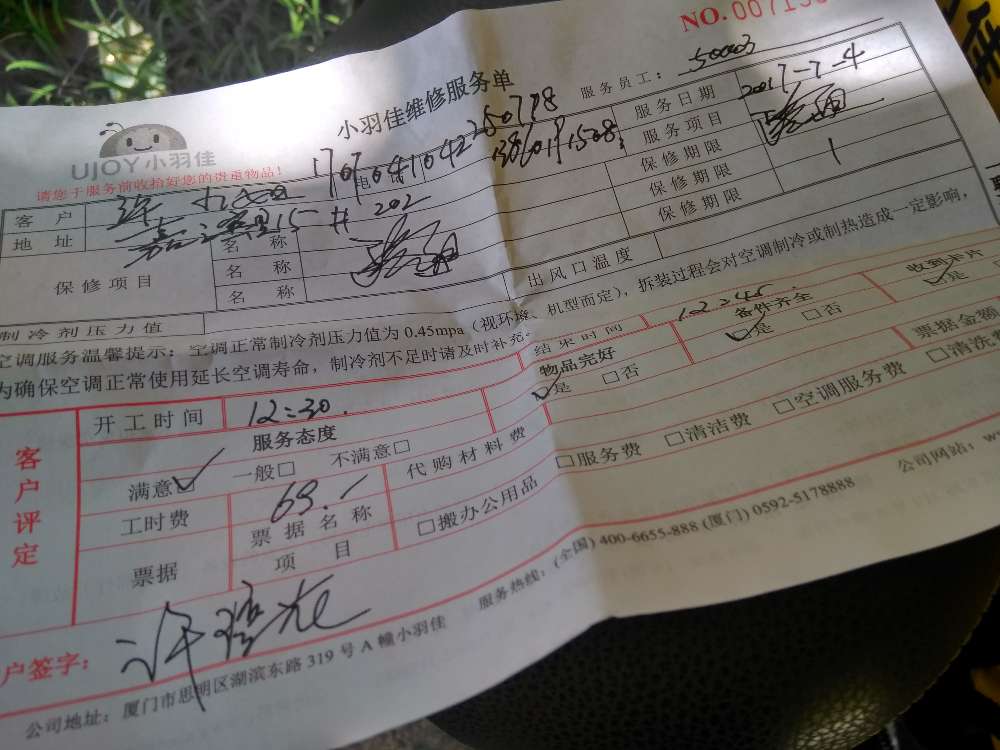 NO.00719
小羽佳维修服务单
服务员工：50003
UJOY小羽佳
请您于服务前收拾好您的贵重物品！
1707041042250778
客户 电 服务日期 2017-7-4
地址 15# 202 服务项目
保修项目 名称 保修期限 1
名称 保修期限
名称 出风口温度 保修期限
制冷剂压力值
空调服务温馨提示：空调正常制冷剂压力值为0.45mpa（视环境、机型而定），拆装过程会对空调制冷或制热造成一定影响，
为确保空调正常使用延长空调寿命，制冷剂不足时请及时补充。
客户评定
开工时间 12:30. 结束时间 12:45 收到卡片
服务态度 物品完好 ☑是 □否 备件齐全 ☑是 □否 ☑是
满意☑ 一般□ 不满意□
工时费 69. 代购材料费 票据金额
票据 票据名称 □服务费 □清洁费 □空调服务费 □清洗
项目 □搬办公用品
户签字：许
服务热线：(全国) 400-6655-888 (厦门) 0592-5178888 公司网站：w
公司地址：厦门市思明区湖滨东路319号A幢小羽佳